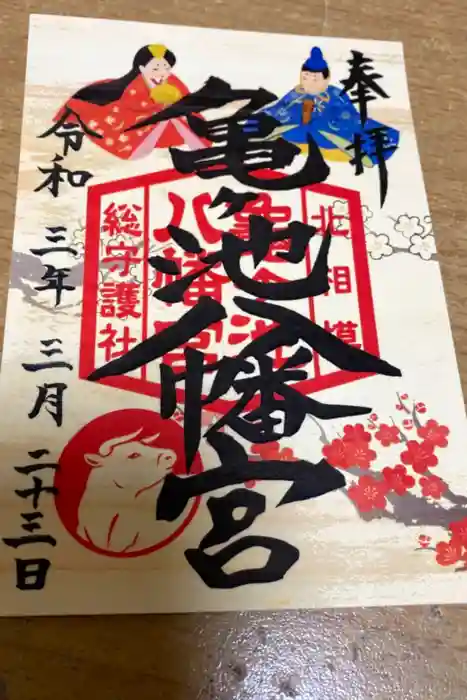 奉拝
亀ヶ池八幡宮
北相模
亀ヶ池
八幡宮
総守護社
令和三年三月二十三日